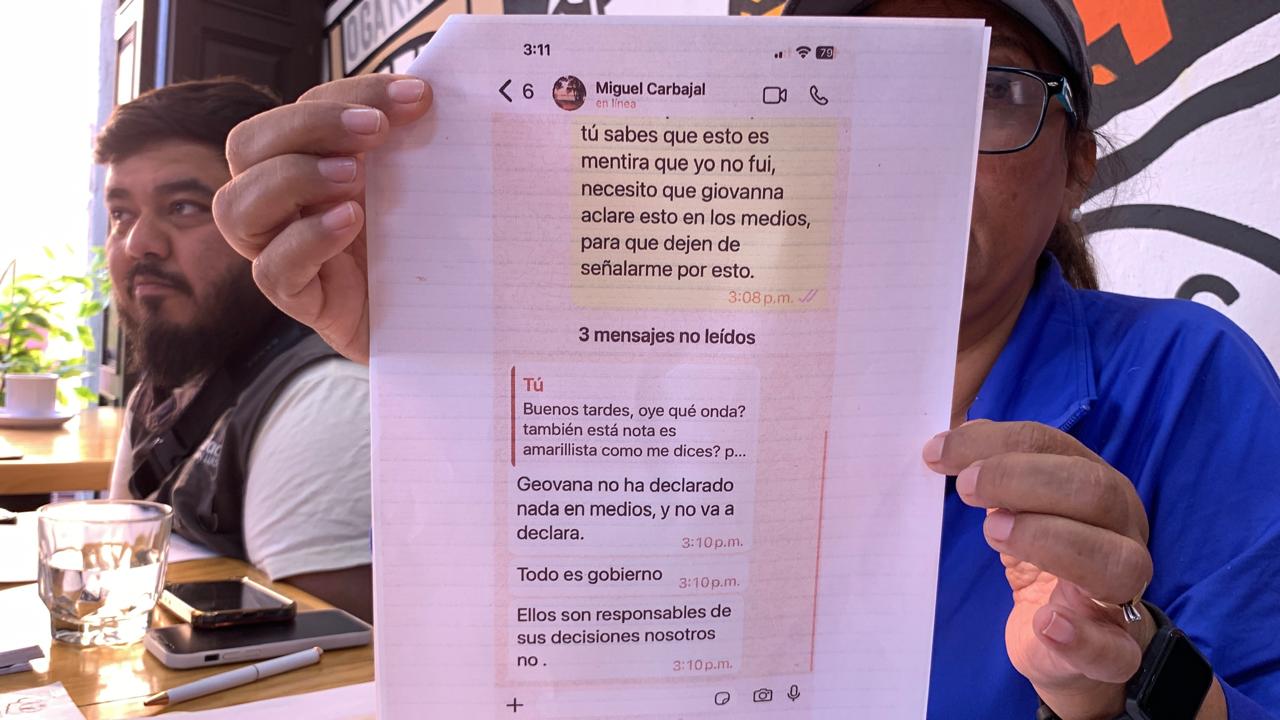 3:11
79
6
Miguel Carbajal
en línea
tú sabes que esto es
mentira que yo no fui,
necesito que giovanna
aclare esto en los medios,
para que dejen de
señalarme por esto.
3:08 p.m.
3 mensajes no leídos
Tú
Buenos tardes, oye qué onda?
también está nota es
amarillista como me dices? p...
Geovana no ha declarado
nada en medios, y no va a
declara.
3:10 p.m.
Todo es gobierno
3:10 p.m.
Ellos son responsables de
sus decisiones nosotros
no .
3:10 p.m.